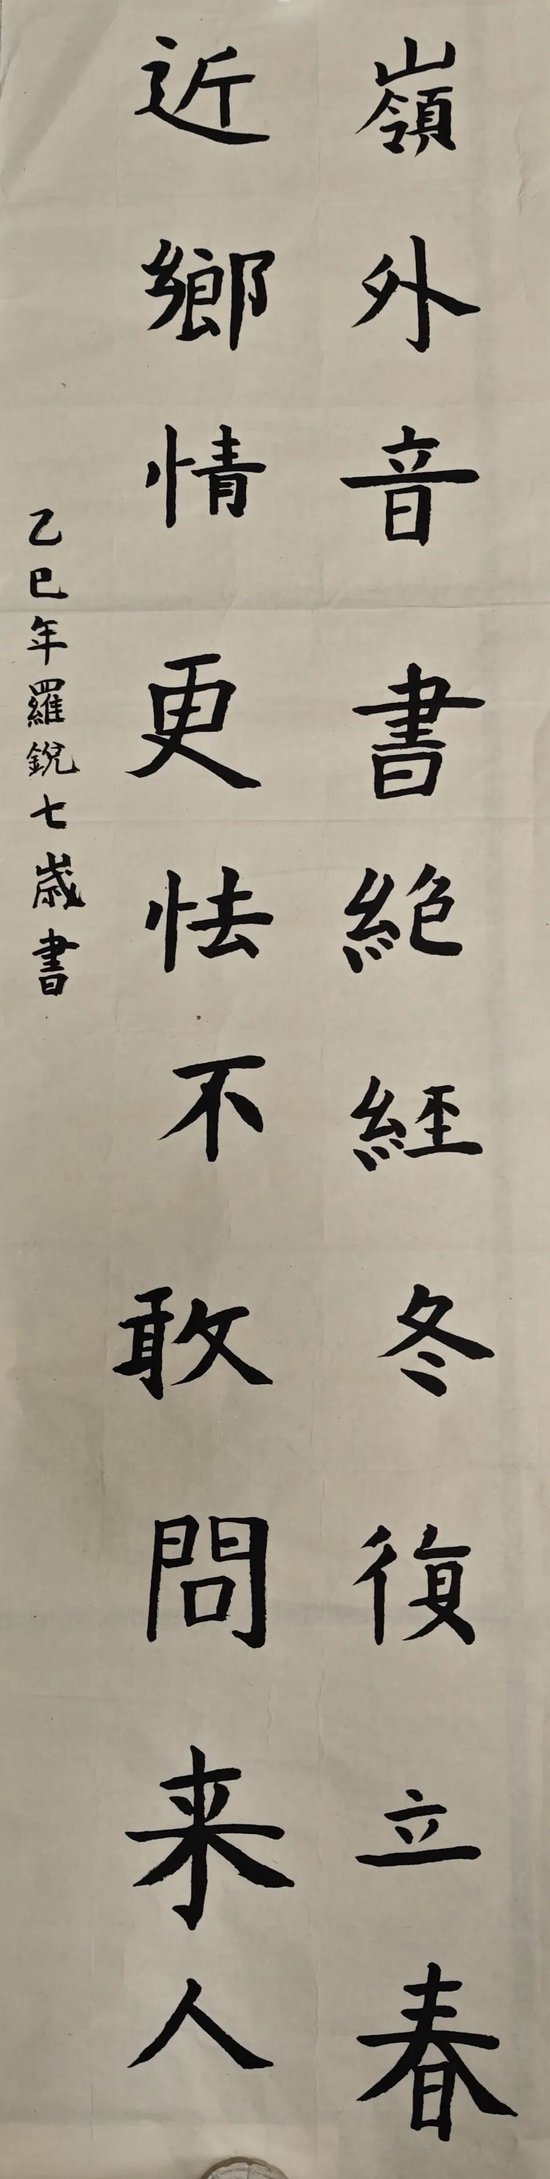 嶺外音書絶經冬復立春
近鄉情更怯不敢問来人
乙巳年羅銳七歲書